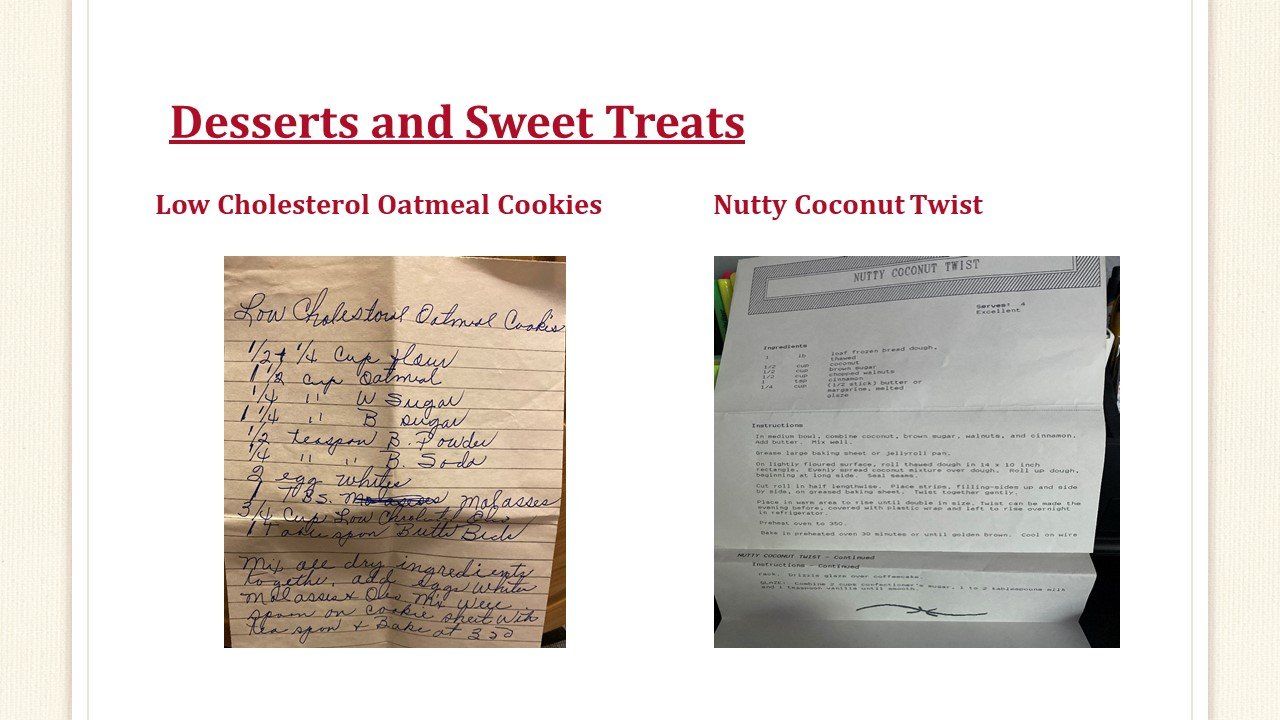 Desserts and Sweet Treats
Low Cholesterol Oatmeal Cookies
Low Cholestoral Oatmeal Cookies
1/2 + 1/4 cup flour
1 1/2 cup Oatmeal
1/4 " W Sugar
1 1/4 " B sugar
1/2 teaspon B. Powder
1/4 " " B. Soda
2 egg whites
TBS. molasses
cup Low
Mix all dry ingredients
together, add eggs
Molasses + Oleo Mix
spoon on cookie sheet with
tea spon + Bake at 350
Nutty Coconut Twist
NUTTY COCONUT TWIST
Serves: 4
Excellent
Ingredients
1 lb loaf frozen bread dough,
thawed
1/2 cup coconut
1/2 cup brown sugar
1/2 cup chopped walnuts
1 tsp cinnamon
1/4 cup (1/2 stick) butter or
margarine, melted
glaze
Instructions
In medium bowl, combine coconut, brown sugar, walnuts, and cinnamon.
Add butter. Mix well.
Grease large baking sheet or jellyroll pan.
On lightly floured surface, roll thawed dough in 14 x 10 inch
rectangle. Evenly spread coconut mixture over dough. Roll up dough,
beginning at long side. Seal seams.
Cut roll in half lengthwise. Place strips, filling-sides up and side
by side, on greased baking sheet. Twist together gently.
Place in warm area to rise until double in size. Twist can be made the
evening before, covered with plastic wrap and left to rise overnight
in refrigerator.
Preheat oven to 350.
Bake in preheated oven 30 minutes or until golden brown. Cool on wire
NUTTY COCONUT TWIST - Continued
Instructions - Continued
rack. Drizzle glaze over coffeecake.
GLAZE: Combine 2 cups confectioner's sugar, 1 to 2 tablespoons milk
and 1 teaspoon vanilla until smooth.